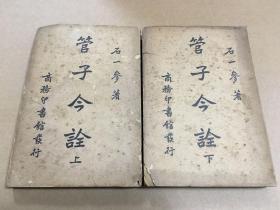 石一參著
管子今詮 上
商務印書館發行
石一參著
管子今詮 下
商務印書館發行